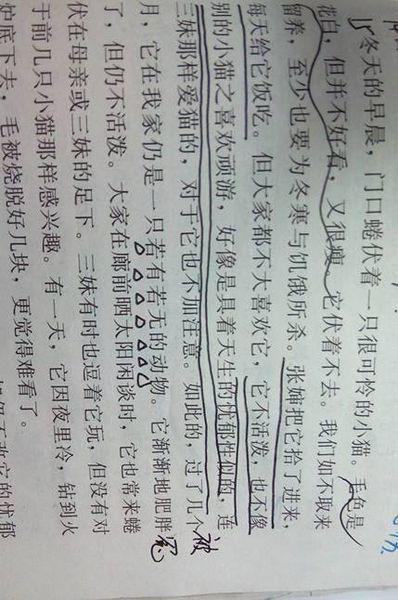 冬天的早晨，门口蜷伏着一只很可怜的小猫。毛色是
花白，但并不好看，又很瘦。它伏着不去。我们如不取来
留养，至少也要为冬寒与饥饿所杀。张婶把它拾了进来，
每天给它饭吃。但大家都不大喜欢它，它不活泼，也不像
别的小猫之喜欢顽游，好像是具着天生的忧郁性似的，连
三妹那样爱猫的，对于它也不加注意。如此的，过了几个
被
月，它在我家仍是一只若有若无的动物。它渐渐地肥胖
了，但仍不活泼。大家在廊前晒太阳闲谈时，它也常来蜷
伏在母亲或三妹的足下。三妹有时也逗着它玩，但没有对
于前几只小猫那样感兴趣。有一天，它因夜里冷，钻到火
炉底下去，毛被烧脱好几块，更觉得难看了。
的忧郁